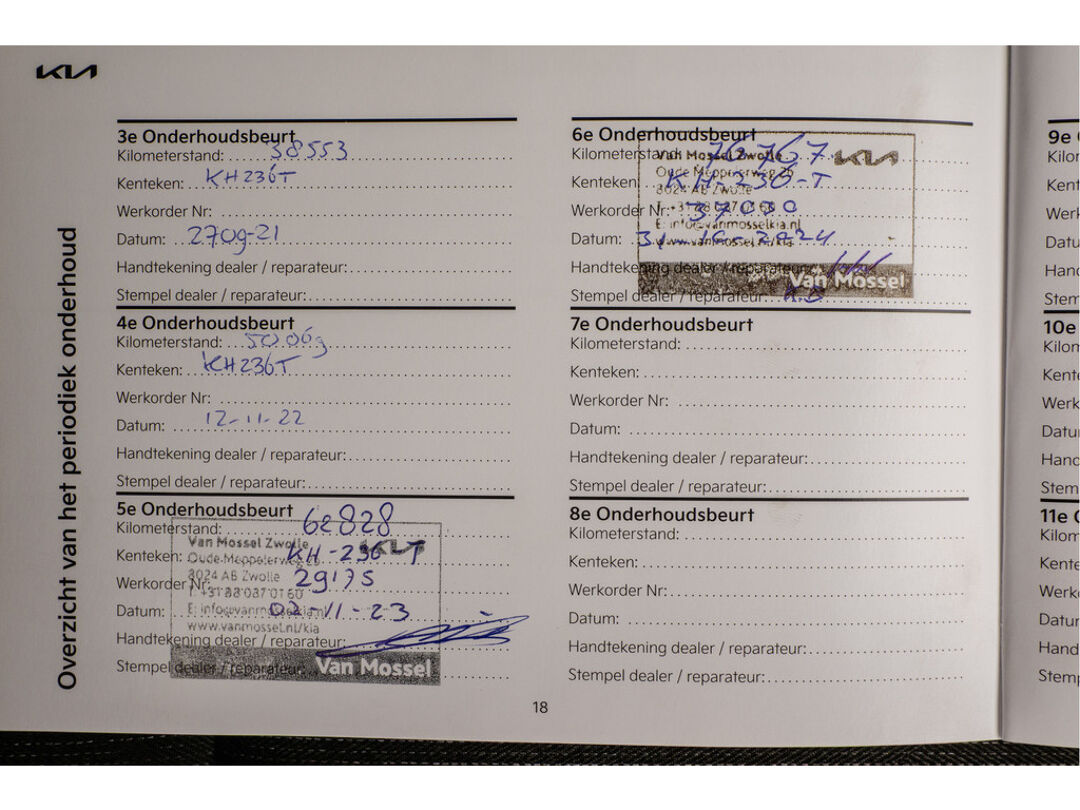 KIA
Overzicht van het periodiek onderhoud
3e Onderhoudsbeurt
Kilometerstand: 38553
Kenteken: KH236T
Werkorder Nr:
Datum: 2709-21
Handtekening dealer / reparateur:
Stempel dealer / reparateur:
4e Onderhoudsbeurt
Kilometerstand: 50069
Kenteken: KH236T
Werkorder Nr:
Datum: 12-11-22
Handtekening dealer / reparateur:
Stempel dealer / reparateur:
5e Onderhoudsbeurt
Kilometerstand: 62828
Kenteken: KH-236 T
Werkorder Nr: 29175
Datum: 02-11-23
Handtekening dealer / reparateur:
Stempel dealer / reparateur:
Van Mossel Zwolle KIA
Oude Meppelerweg
8024 AB Zwolle
T: +31 88 037 01 60
E: info@vanmosselkia.nl
www.vanmossel.nl/kia
Van Mossel
18
6e Onderhoudsbeurt
Kilometerstand: 76767
Kenteken: KH-236-T
Werkorder Nr: 37000
Datum: 31-10-2024
Handtekening dealer / reparateur:
Stempel dealer / reparateur:
Van Mossel Zwolle KIA
Oude Meppelerweg 26
8024 AB Zwolle
E: info@vanmosselkia.nl
www.vanmossel.nl/kia
Van Mossel
7e Onderhoudsbeurt
Kilometerstand:
Kenteken:
Werkorder Nr:
Datum:
Handtekening dealer / reparateur:
Stempel dealer / reparateur:
8e Onderhoudsbeurt
Kilometerstand:
Kenteken:
Werkorder Nr:
Datum:
Handtekening dealer / reparateur:
Stempel dealer / reparateur:
9e
10e
11e